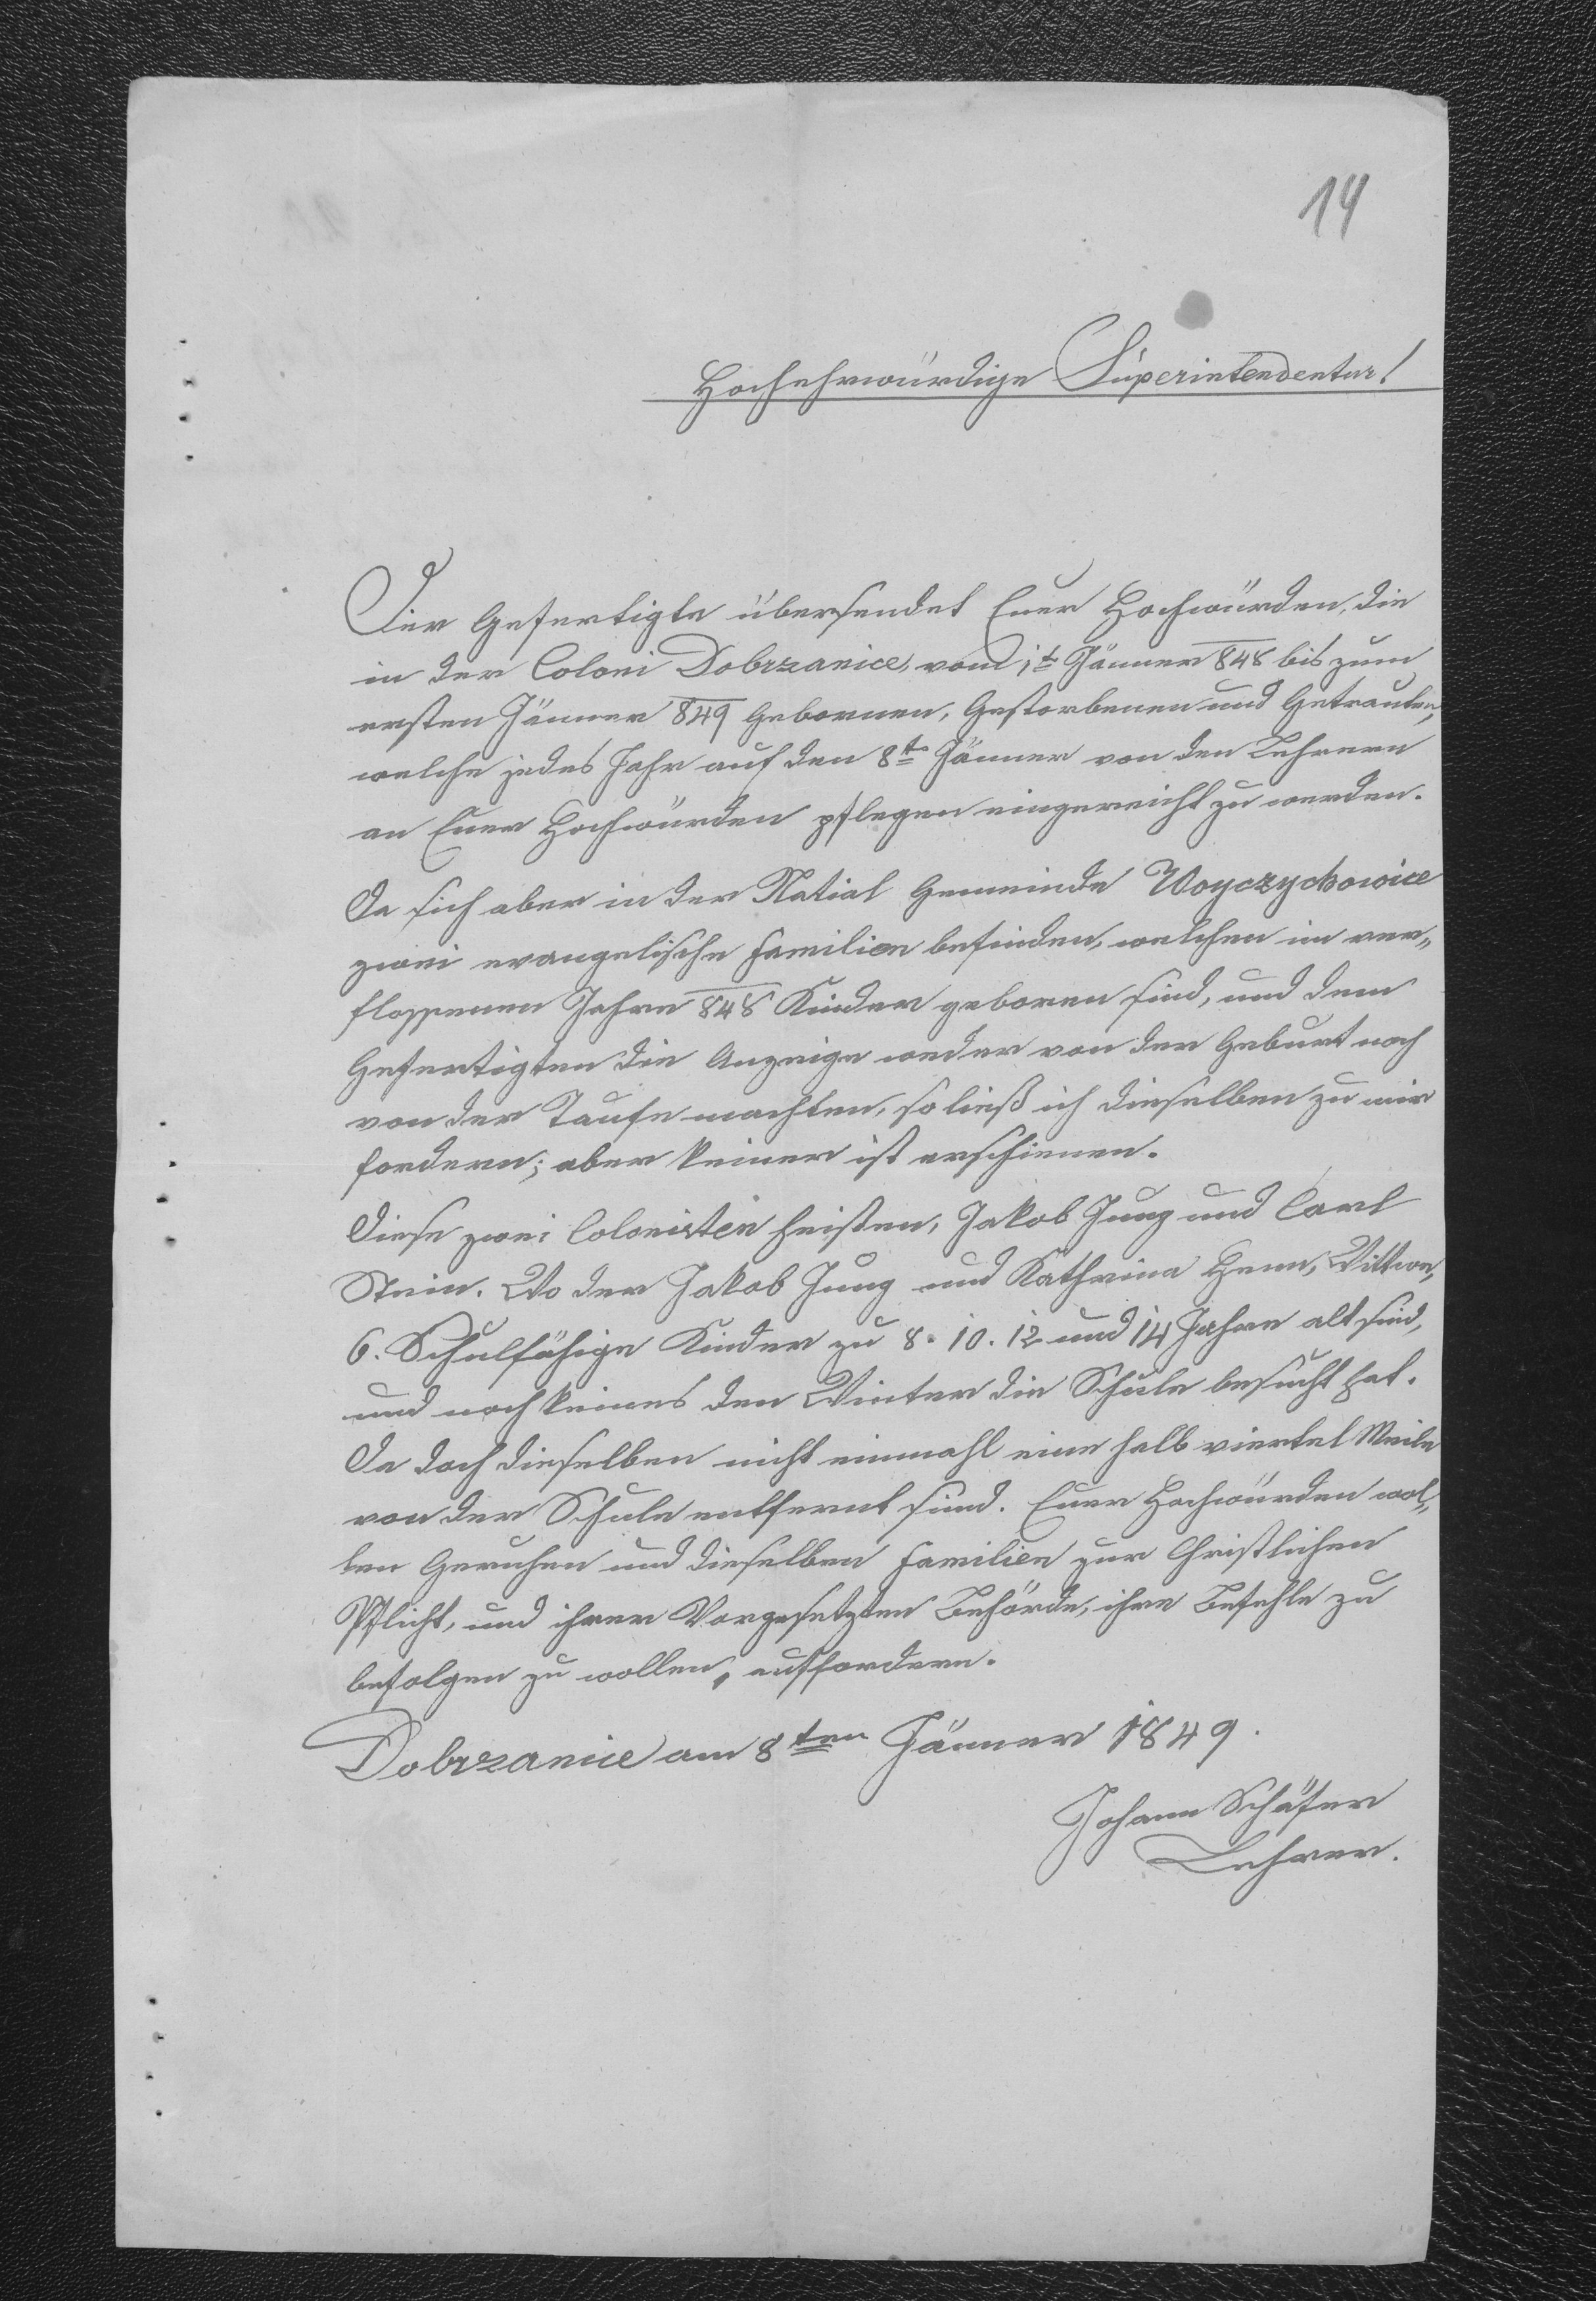 14
Hochehrwürdige Superintendentur!
Der Gefertigte übersendet Euer Hochwürden, die
in der Coloni Dobrzanice, vom 1t Jänner 848 bis zum
ersten Jänner 849 Gebornen, Gestorbenen und Getrauten,
welche jedes Jahr auf den 8t Jänner von den Lehrern
an Euer Hochwürden pflegen eingereicht zu werden.
Da sich aber in der Natial Gemeinde Woyczychowice
zwei evangelische Familien befinden, welchen im ver„
flossenen Jahre 848 Kinder geboren sind, und dem
Gefertigten die Anzeige weder von der Geburt noch
von der Taufe machten, so ließ ich dieselben zu mir
fordern; aber keiner ist erschienen.
Diese zwei Colonisten heißen, Jakob Jung und Carl
Stein. Wo der Jakob Jung und Kathrina Henn, Wittwe,
6. Schulfähige Kinder zu 8. 10. 12 und 14 Jahre alt sind,
und noch keines den Winter die Schule besucht hat.
Da doch dieselben nicht einmahl eine halb viertel Meile
von der Schule entfernt sind. Euer Hochwürden wol„
len Geruhen und dieselben Familien zur Christlichen
Pflicht, und ihrer Vorgesetzten Behörde, ihre Befehle zu
befolgen zu wollen, auffordern.
Dobrzanice am 8ten Jänner 1849.
Johann Schäfer
Lehrer.